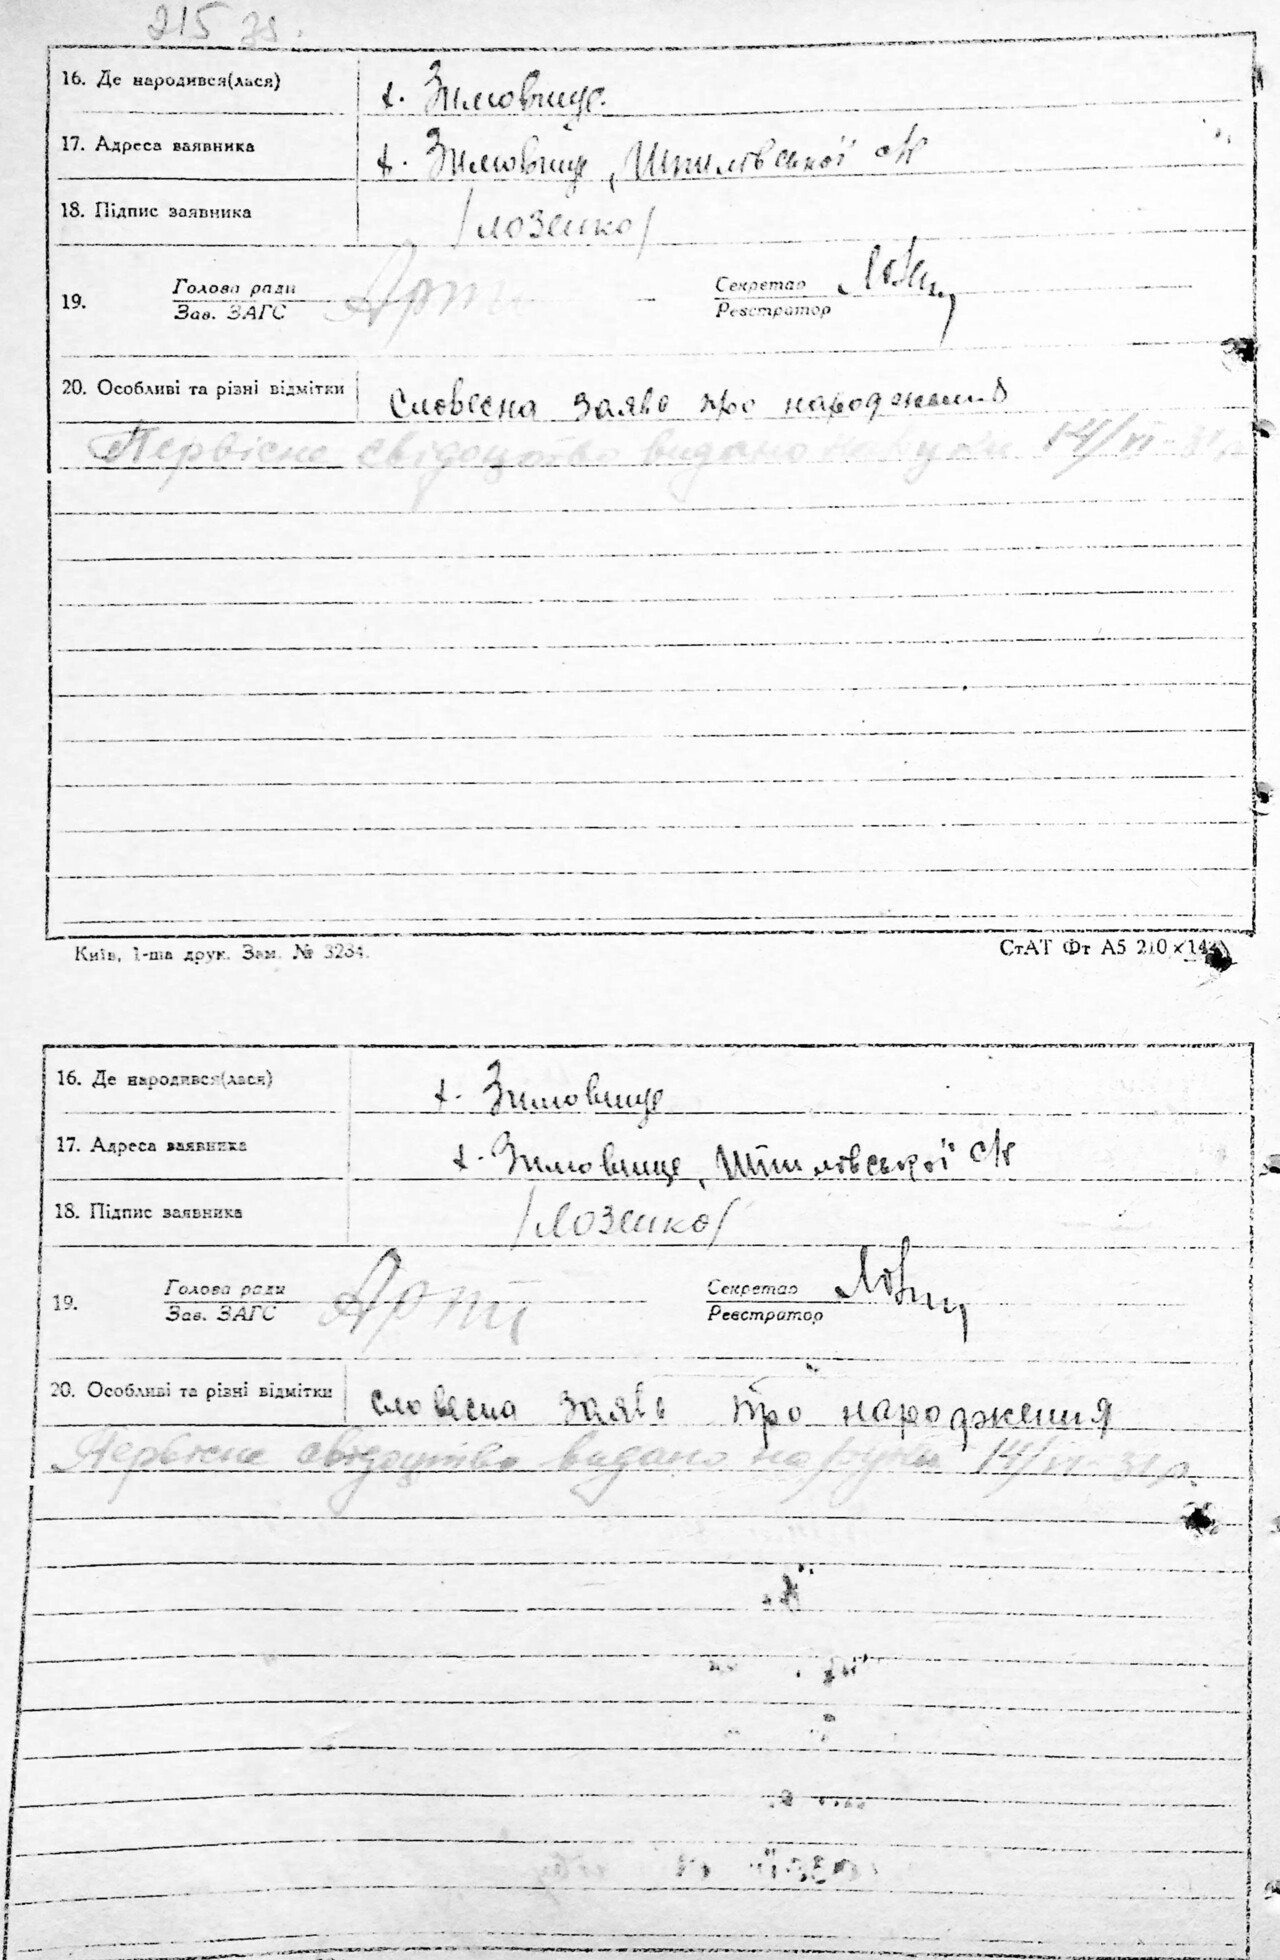 215 зв.
16. Де народився(лася) х. Зимовище
17. Адреса заявника х. Зимовище, Шпилівської с/р
18. Підпис заявника /Лозенко/
19. Голова ради Секретар
Зав. ЗАГС Реєстратор
20. Особливі та різні відмітки словесна заява про народження
Первісне свідоцтво видано на руки 14/VI-31 р.
Київ, 1-ша друк. Зам. № 3234. СтАТ Фт А5 210×14
16. Де народився(лася) х. Зимовище
17. Адреса заявника х. Зимовище, Шпилівської с/р
18. Підпис заявника /Лозенко/
19. Голова ради Секретар
Зав. ЗАГС Реєстратор
20. Особливі та різні відмітки словесна заява про народження
Первісне свідоцтво видано на руки 14/VI-31 р.